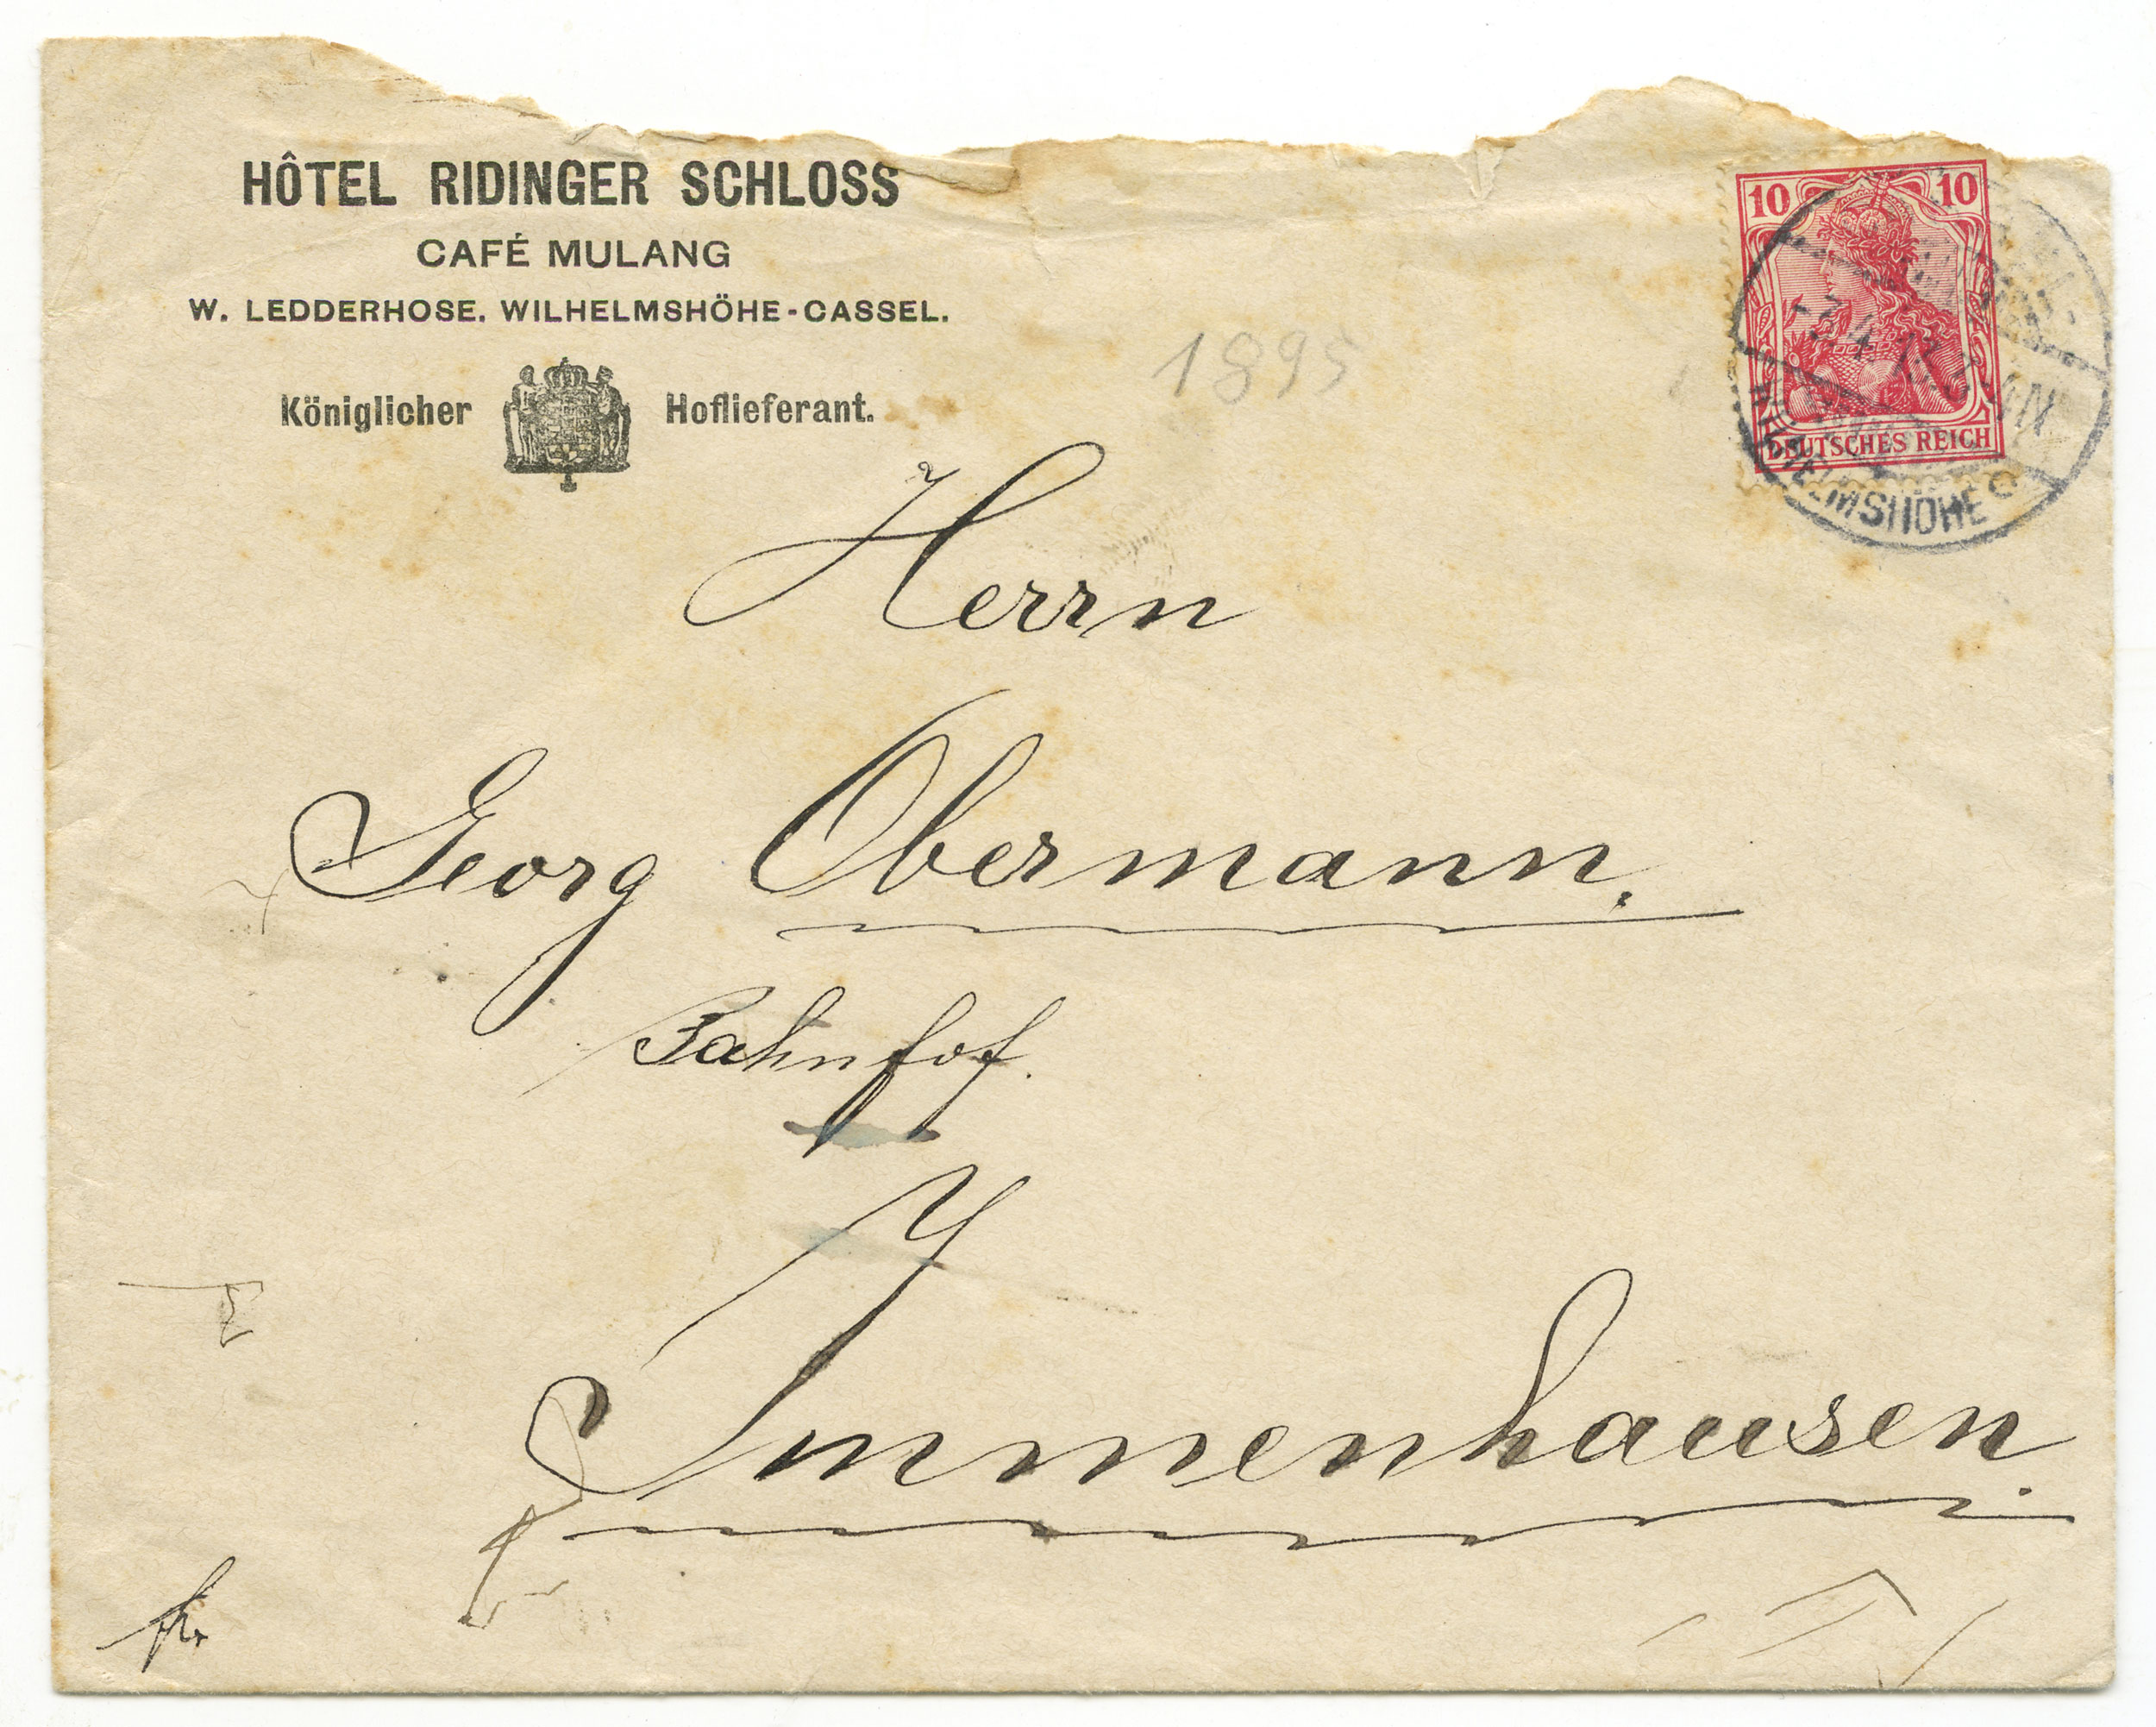 HÔTEL RIDINGER SCHLOSS
CAFÉ MULANG
W. LEDDERHOSE. WILHELMSHÖHE-CASSEL.
Königlicher Hoflieferant.
10 10
DEUTSCHES REICH
WILHELMSHÖHE
1895
Herrn
Georg Obermann.
Bahnhof.
Immenhausen.